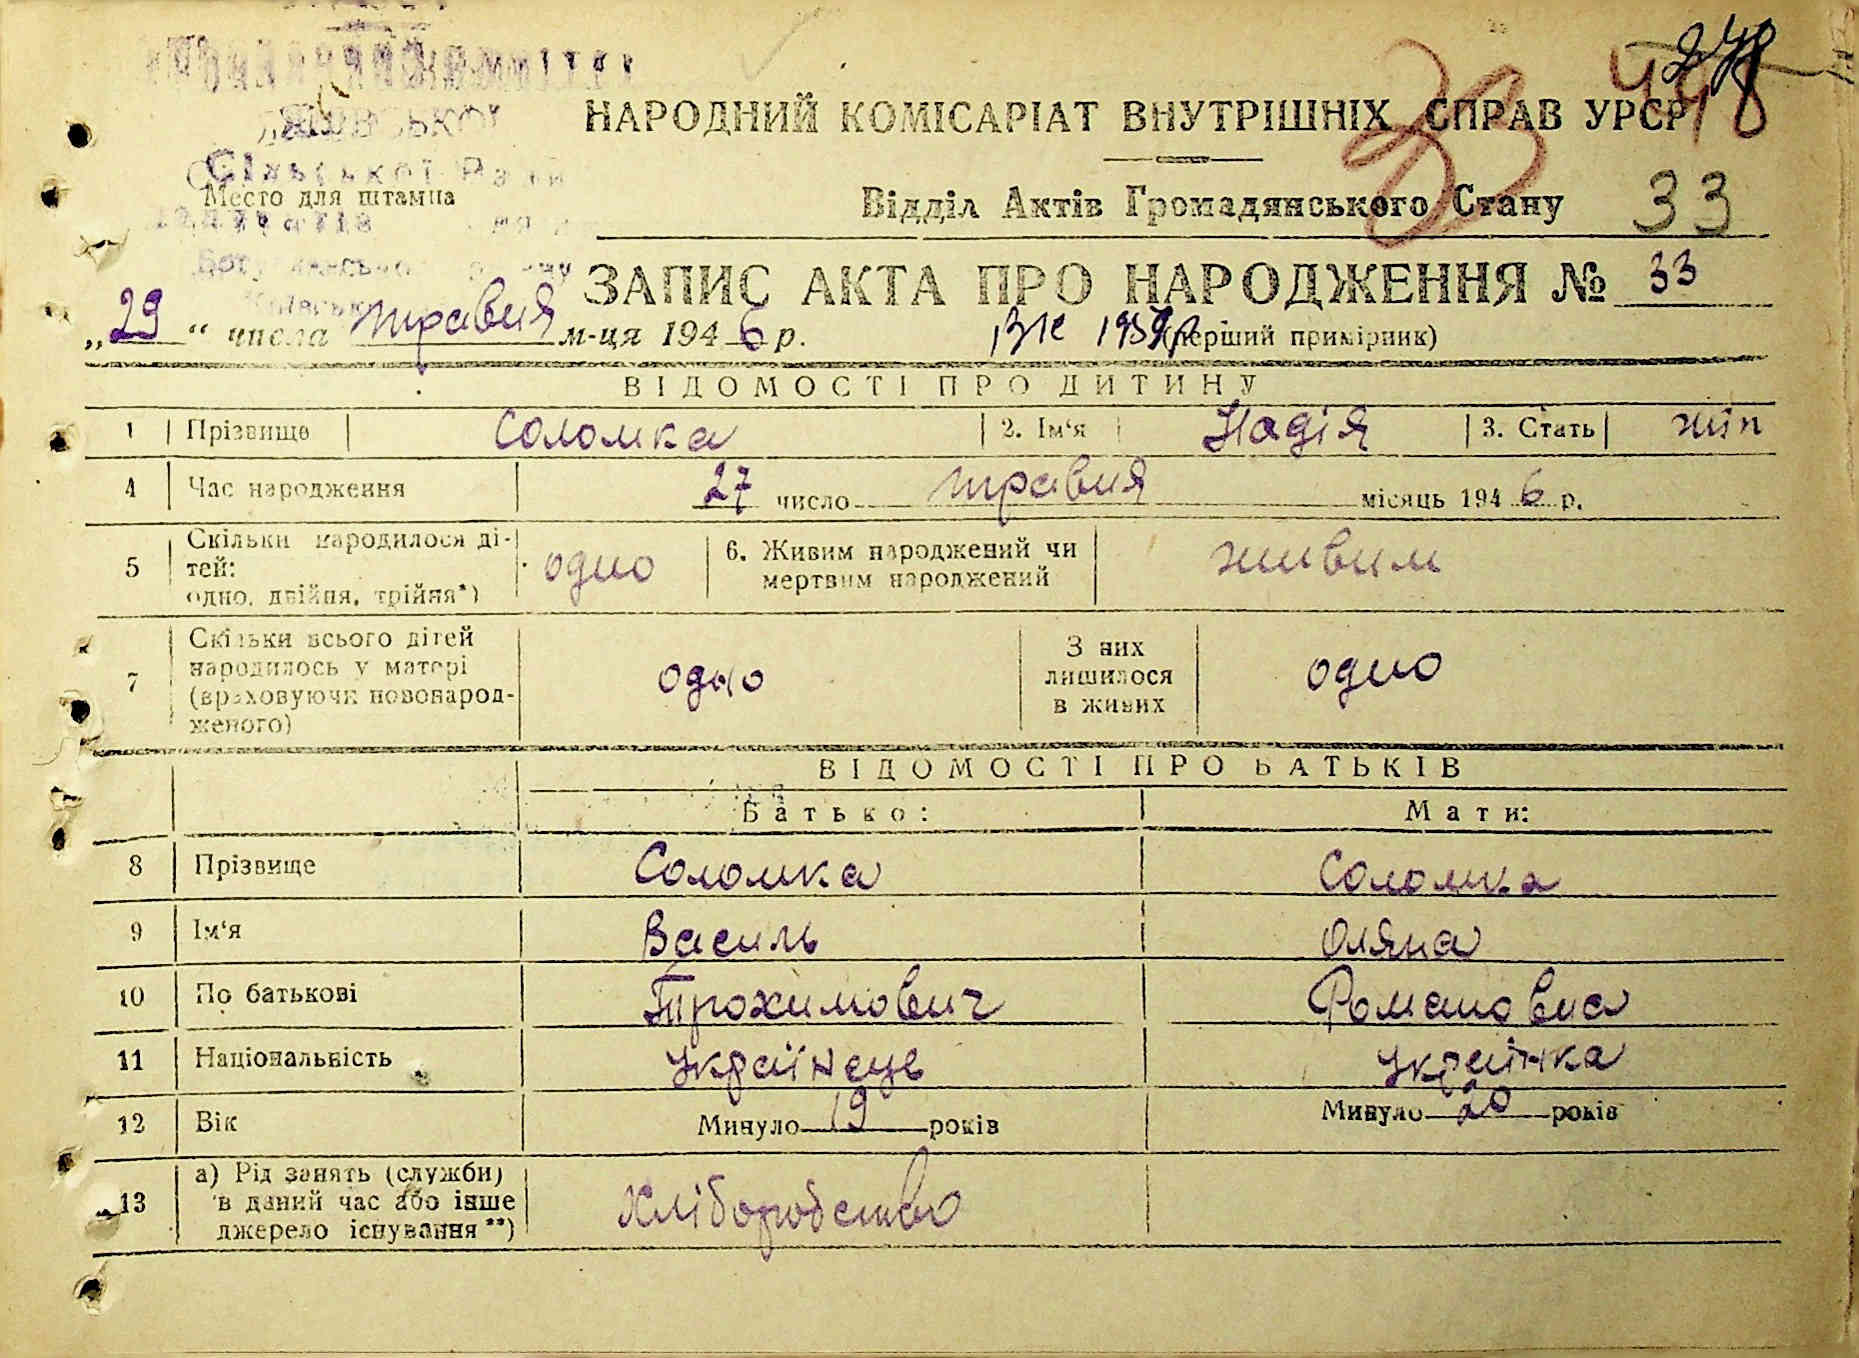 278
НАРОДНИЙ КОМІСАРІАТ ВНУТРІШНІХ СПРАВ УРСР
33
Сільської Ради
Место для штампа
Відділ Актів Громадянського Стану 33
ЗАПИС АКТА ПРО НАРОДЖЕННЯ № 33
„29“ числа травня м-ця 1946 р. (перший примірник)
ВІДОМОСТІ ПРО ДИТИНУ
1 Прізвище Соломка 2. Ім‘я Надія 3. Стать жін
4 Час народження 27 число травня місяць 1946 р.
5 Скільки народилося ді-
тей:
одно, двійня, трійня*)
одно
6. Живим народжений чи
мертвим народжений
живим
7 Скільки всього дітей
народилось у матері
(враховуючи новонарод-
женого)
одно
З них
лишилося
в живих
одно
ВІДОМОСТІ ПРО БАТЬКІВ
Батько: Мати:
8 Прізвище Соломка Соломка
9 Ім‘я Василь Оляна
10 По батькові Трохимович Романовна
11 Національність Українець Українка
12 Вік Минуло 19 років Минуло 20 років
13 а) Рід занять (служби)
в даний час або інше
джерело існування**)
Хліборобство